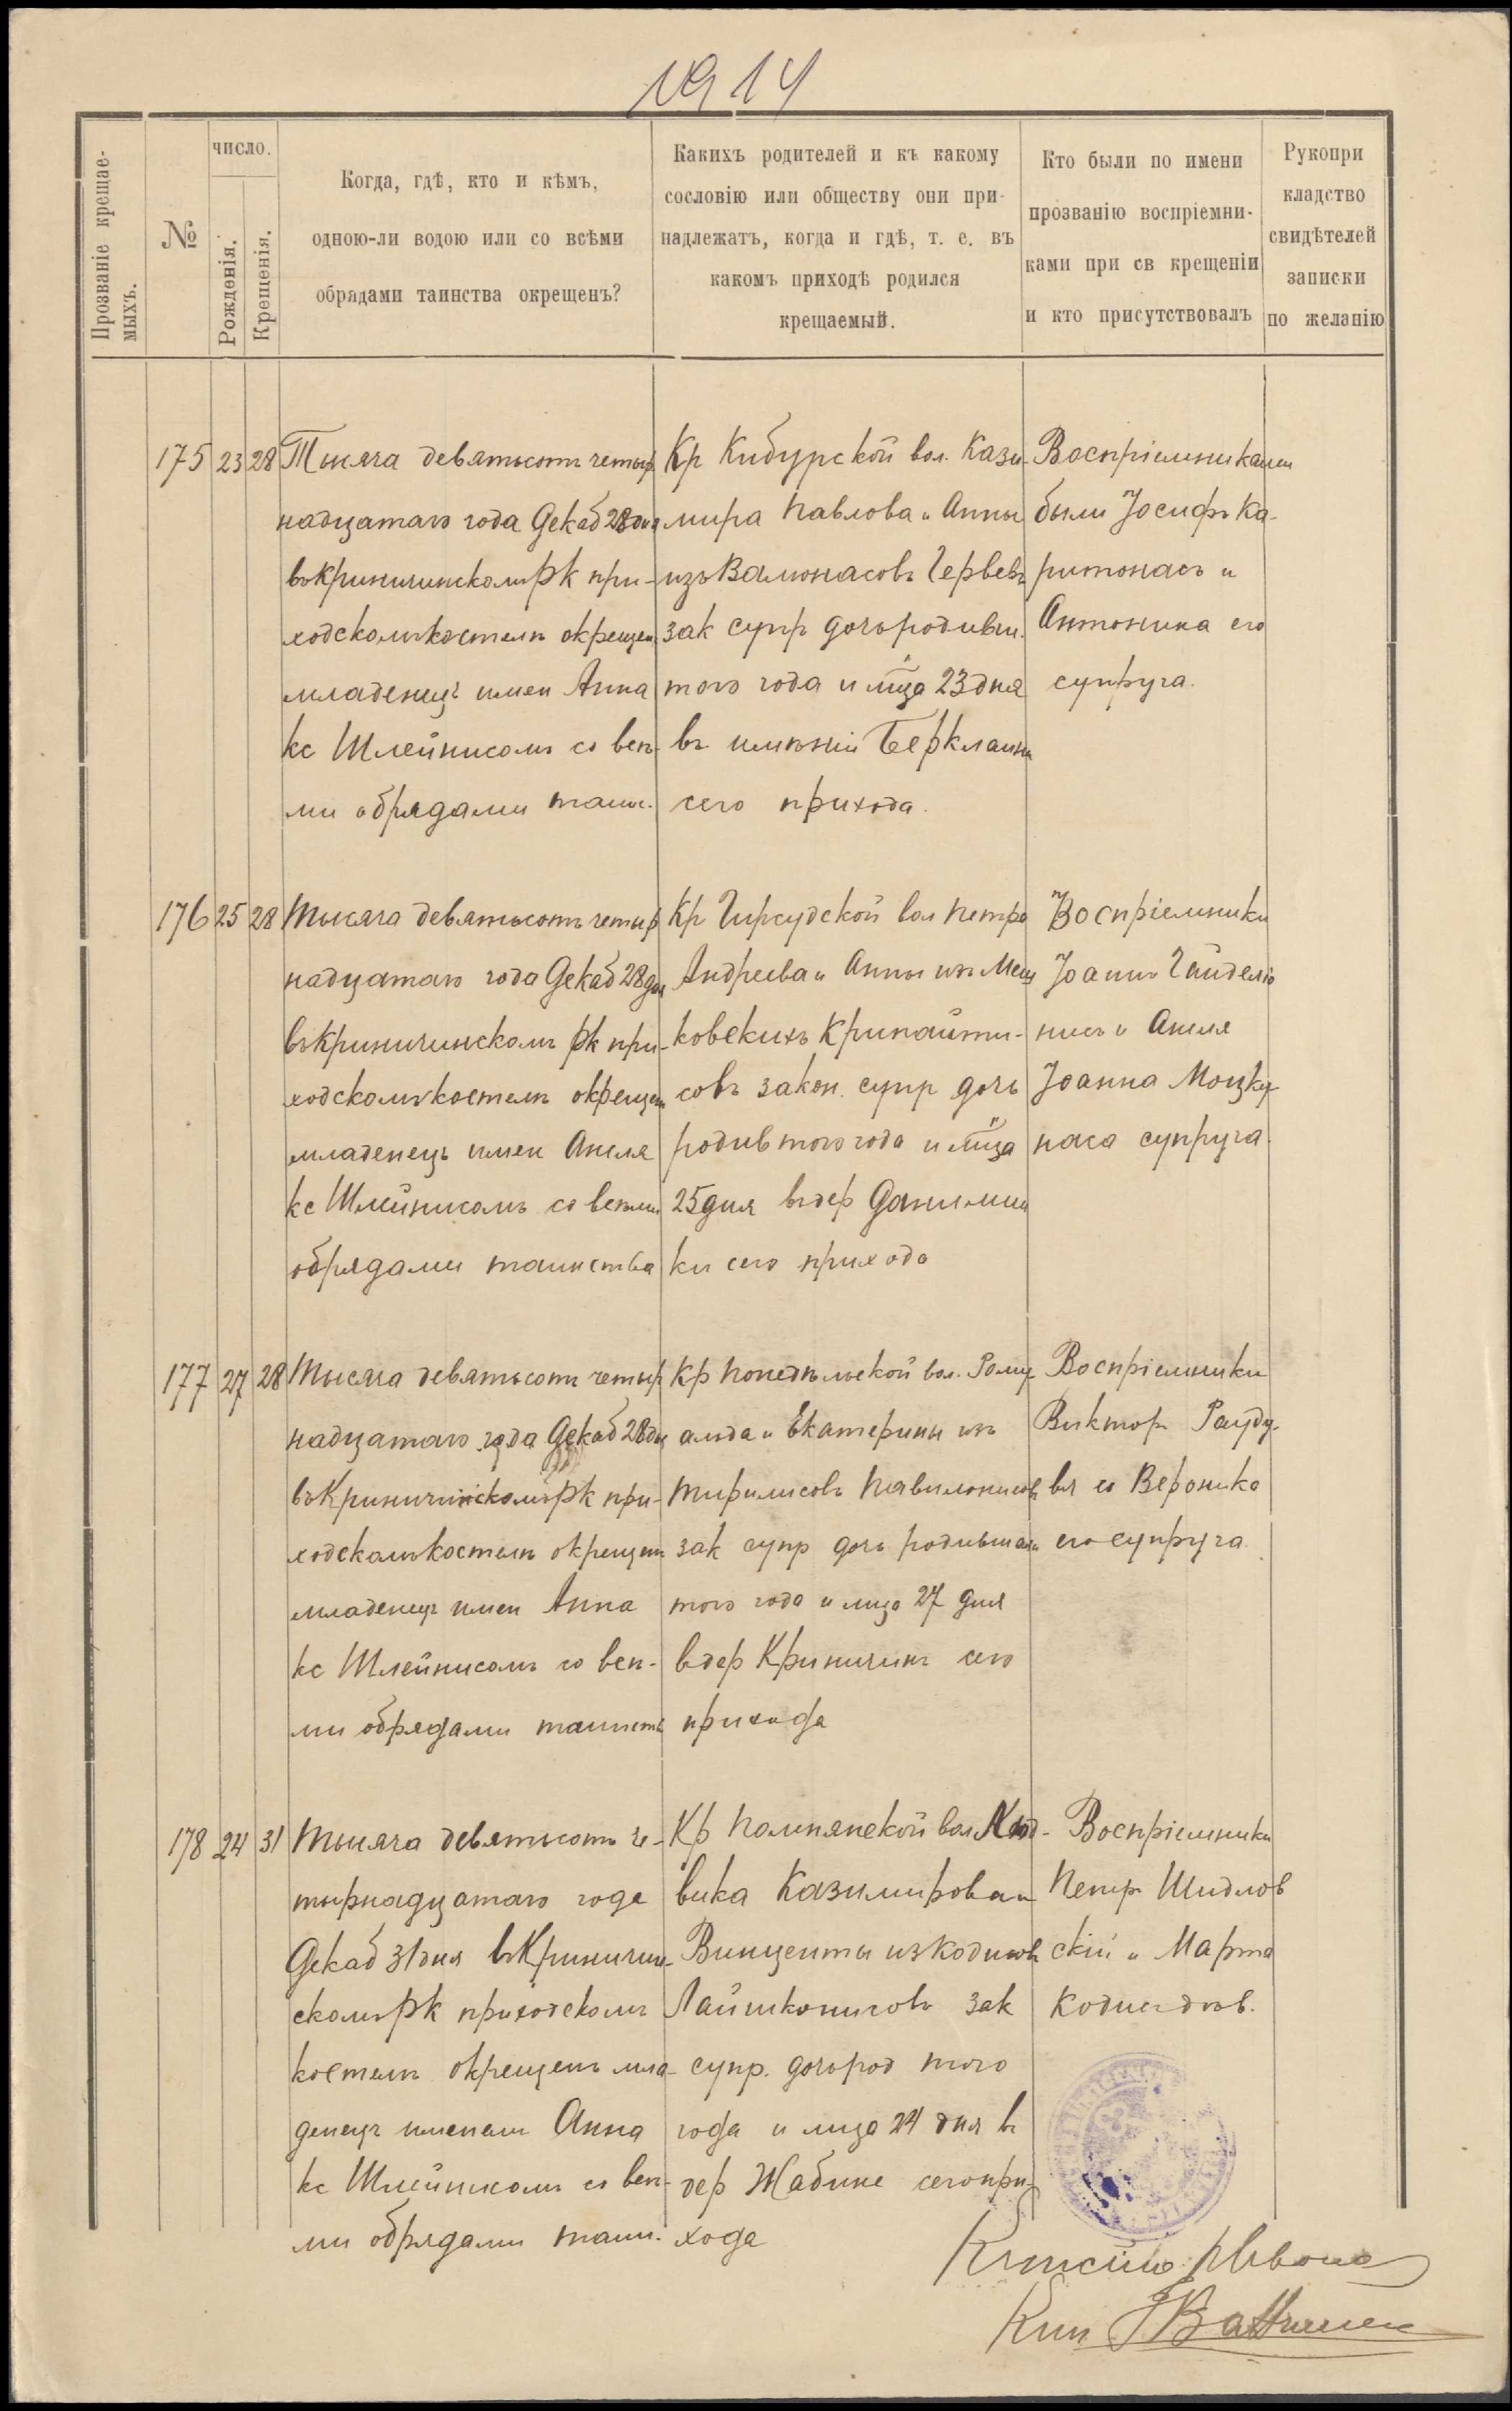 1914
Прозваніе крещае-
мыхъ.
№
число.
Рожденія.
Крещенія.
Когда, гдѣ, кто и кѣмъ,
одною-ли водою или со всѣми
обрядами таинства окрещенъ?
Какихъ родителей и къ какому
сословію или обществу они при-
надлежатъ, когда и гдѣ, т. е. въ
какомъ приходѣ родился
крещаемый.
Кто были по имени
прозванію воспріемни-
ками при св крещеніи
и кто присутствовалъ
Рукопри
кладство
свидѣтелей
записки
по желанію
175 23 28
Тысяча девятьсотъ четыр
надцатаго года Декаб 28 дня
въ Криничинскомъ рк при-
ходскомъ костелѣ окрещен
младенецъ имен Анна
кс Шлейнисомъ со всѣ-
ми обрядами таин.
Кр Кибурской вол. Кази-
мира Павлова и Анны
изъ Валюнасовъ
зак супр дочь родивш.
того года и мца 23 дня
въ имѣніи
сего прихода.
Воспріемниками
были Іосифъ Ка-
ритонасъ и
Антонина его
супруга.
176 25 28
Тысяча девятьсотъ четыр
надцатаго года Декаб 28 дня
въ Криничинскомъ рк при-
ходскомъ костелѣ окрещен
младенецъ имен Анеля
кс Шлейнисомъ со всѣми
обрядами таинства
Кр Гирсудской вол Петра
Андреева и Анны изъ Меш
ковскихъ Крипайти-
совъ закон. супр дочь
родив того года и мца
25 дня въ дер Данилиш
ки сего прихода
Воспріемники
Іоаннъ Гайделіо
нисъ и Анеля
Іоанна Моцку
наса супруга.
177 27 28
Тысяча девятьсотъ четыр
надцатаго года Декаб 28 дн
въ Криничинскомъ рк при-
ходскомъ костелѣ окрещен
младенецъ имен Анна
кс Шлейнисомъ со всѣ-
ми обрядами таинств
Кр Понедѣльской вол. Рому
альда и Екатерины изъ
Тирилисовъ Павилонисовъ
зак супр дочь родившаяся
того года и мца 27 дня
въ дер Криничинъ сего
прихода
Воспріемники
Викторъ Рауду-
вя со Вероника
его супруга.
178 24 31
Тысяча девятьсотъ че-
тырнадцатаго года
Декаб 31 дня въ Криничин-
скомъ рк приходскомъ
костелѣ окрещенъ мла-
денецъ именем Анна
кс Шлейнисомъ со всѣ-
ми обрядами таин.
Кр Помпянской вол Люд-
вика Казимирова и
Винценты из
Лайшконисовъ зак
супр. дочь род того
года и мца 24 дня въ
дер Жабине сего при-
хода
Воспріемники
Петр Шидлов
скій и Марта